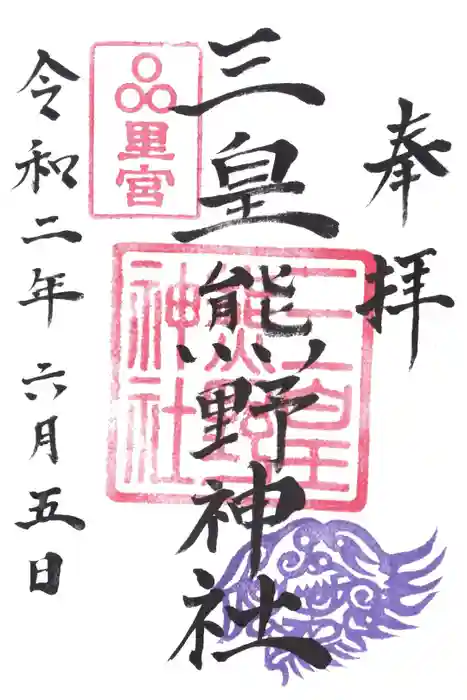 奉拝
三皇熊野神社
里宮
三皇熊野神社
令和二年六月五日